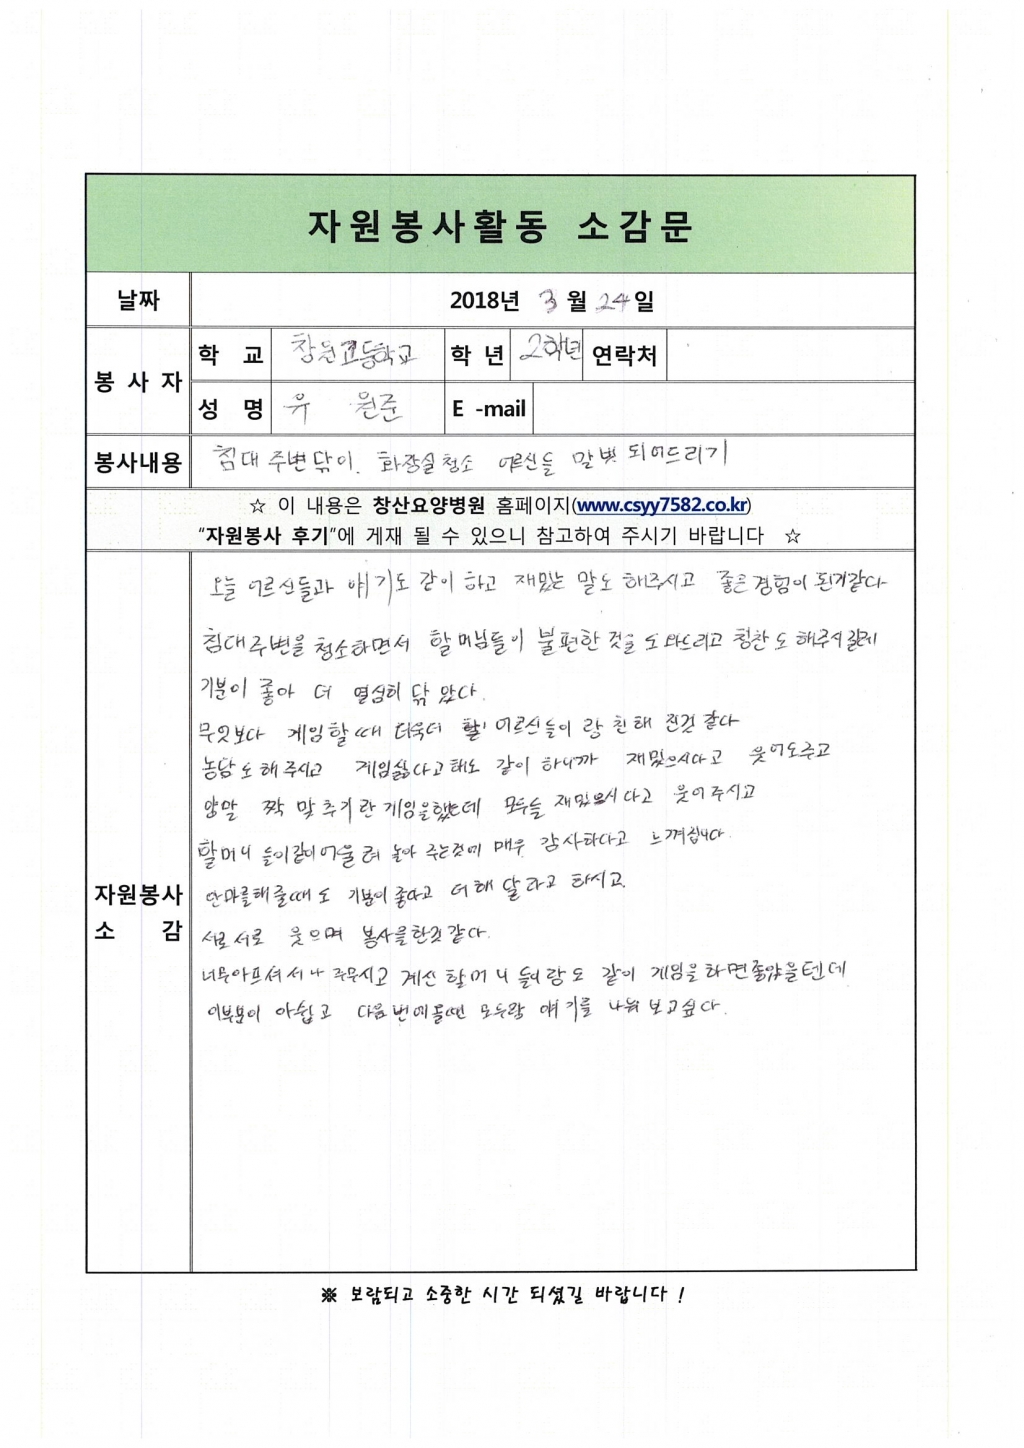 자원봉사활동 소감문
날짜 2018년 3월 24일
봉사자 학 교 창원고등학교 학 년 2학년 연락처
성 명 유 원준 E -mail
봉사내용 침대 주변닦이. 화장실청소 어르신들 말벗 되어드리기
☆ 이 내용은 창산요양병원 홈페이지(www.csyy7582.co.kr)
"자원봉사 후기"에 게재 될 수 있으니 참고하여 주시기 바랍니다 ☆
자원봉사
소 감
오늘 어르신들과 얘기도 같이 하고 재밌는 말도 해주시고 좋은경험이 된거같다
침대주변을 청소하면서 할머님들이 불편한 것을 도와드리고 칭찬도 해주시길래
기분이 좋아 더 열심히 닦았다.
무엇보다 게임할때 더욱더 어르신들이랑 친해진것 같다
농담도해주시고 게임싫다고해도 같이 하니까 재밌으시다고 웃어도주고
양말 짝 맞추기란 게임을했는데 모두들 재밌으시다고 웃어주시고
할머니들이같이어울려 놀아 주는것에 매우 감사하다고 느껴집니다.
안마를해줄때도 기분이좋다고 더해달라고 하시고.
서로서로 웃으며 봉사을한것같다.
너무아프셔서 누워주무시고 계신 할머니들이랑도 같이 게임을하면좋았을텐데
이부분이 아쉽고 다음번에올땐 모두랑 얘기를 나눠보고싶다.
※ 보람되고 소중한 시간 되셨길 바랍니다 !